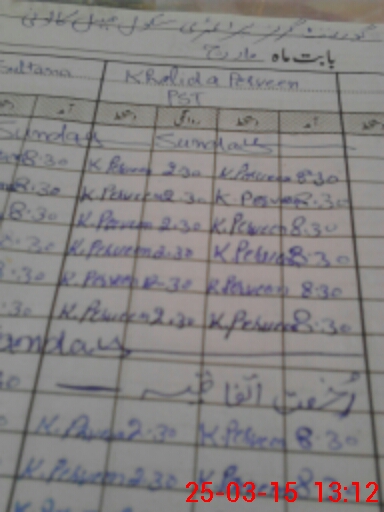 بابت ماہ مارچ
Sultana Khalida Perveen
PST
آمد دستخط روانگی دستخط آمد
Sunday Sunday
8.30 K.Perveen 2.30 K.Perveen 8.30
8.30 K.Perveen 2.30 K.Perveen 8.30
8.30 K.Perveen 2.30 K.Perveen 8.30
8.30 K.Perveen 2.30 K.Perveen 8.30
8.30 K.Perveen 2.30 K.Perveen 8.30
.30 K.Perveen 2.30 K.Perveen 8.30
Sunday
30 رُخصت اتفاقیہ
K.Perveen 2.30 K.Perveen 8.30
K.Perveen 2.30 K.Perveen 8.
25-03-15 13:12